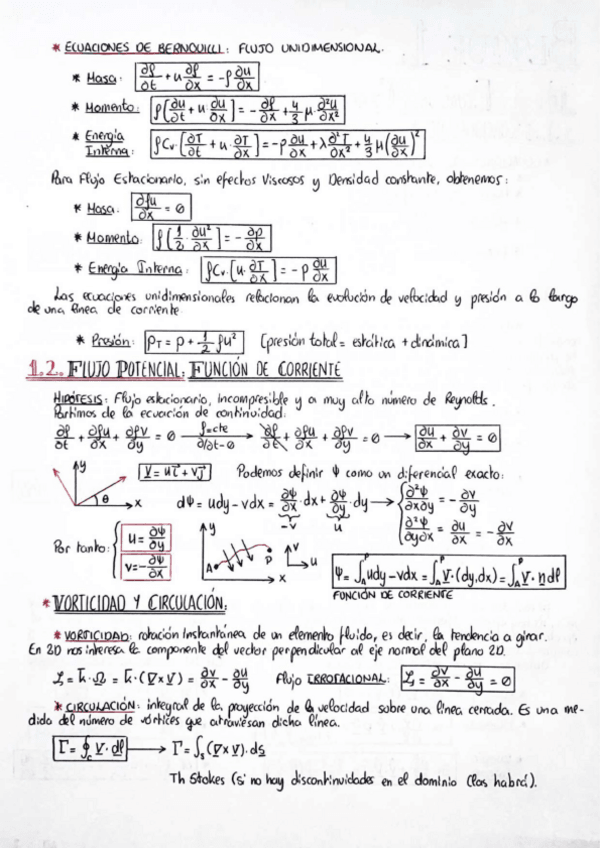 * ECUACIONES DE BERNOUILLI: FLUJO UNIDIMENSIONAL.
* Masa: ∂ρ/∂t + u ∂ρ/∂x = -ρ ∂u/∂x
* Momento: ρ[∂u/∂t + u·∂u/∂x] = -∂p/∂x + 4/3 μ ∂²u/∂x²
* Energía Interna: ρCv·[∂T/∂t + u·∂T/∂x] = -p ∂u/∂x + λ ∂²T/∂x² + 4/3 μ(∂u/∂x)²
Para Flujo Estacionario, sin efectos Viscosos y Densidad constante, obtenemos:
* Masa: ∂ρu/∂x = 0
* Momento: ρ[1/2 · ∂u²/∂x] = -∂p/∂x
* Energía Interna: ρCv·[u·∂T/∂x] = -p ∂u/∂x
Las ecuaciones unidimensionales relacionan la evolución de velocidad y presión a lo largo
de una línea de corriente.
* Presión: p_T = p + 1/2 ρu² [presión total = estática + dinámica]
1.2. FLUJO POTENCIAL: FUNCIÓN DE CORRIENTE
HIPÓTESIS: Flujo estacionario, incompresible y a muy alto número de Reynolds.
Partimos de la ecuación de continuidad:
∂ρ/∂t + ∂ρu/∂x + ∂ρv/∂y = 0 ρ=cte ∂/∂t=0 → ∂ρ/∂t + ∂ρu/∂x + ∂ρv/∂y = 0 → ∂u/∂x + ∂v/∂y = 0
y θ x V = ui + vj Podemos definir Ψ como un diferencial exacto:
dΨ = udy - vdx = ∂Ψ/∂x · dx + ∂Ψ/∂y · dy → { ∂²Ψ/∂x∂y = -∂v/∂y
-v u ∂²Ψ/∂y∂x = ∂u/∂x = -∂v/∂x
Por tanto: { u = ∂Ψ/∂y
v = -∂Ψ/∂x
y A P x v u
Ψ = ∫_A^P udy - vdx = ∫_A^P V·(dy,dx) = ∫_A^P V·n dl
FUNCIÓN DE CORRIENTE
* VORTICIDAD Y CIRCULACIÓN:
* VORTICIDAD: rotación instantánea de un elemento fluido, es decir, la tendencia a girar.
En 2D nos interesa la componente del vector perpendicular al eje normal del plano 2D.
ζ = k·Ω = k·(∇×V) = ∂v/∂x - ∂u/∂y Flujo IRROTACIONAL: ζ = ∂v/∂x - ∂u/∂y = 0
* CIRCULACIÓN: integral de la proyección de la velocidad sobre una línea cerrada. Es una me-
dida del número de vórtices que atraviesan dicha línea.
Γ = ∮_c V·dl → Γ = ∫_S (∇×V)·ds
Th Stokes (si no hay discontinuidades en el dominio (las habrá).